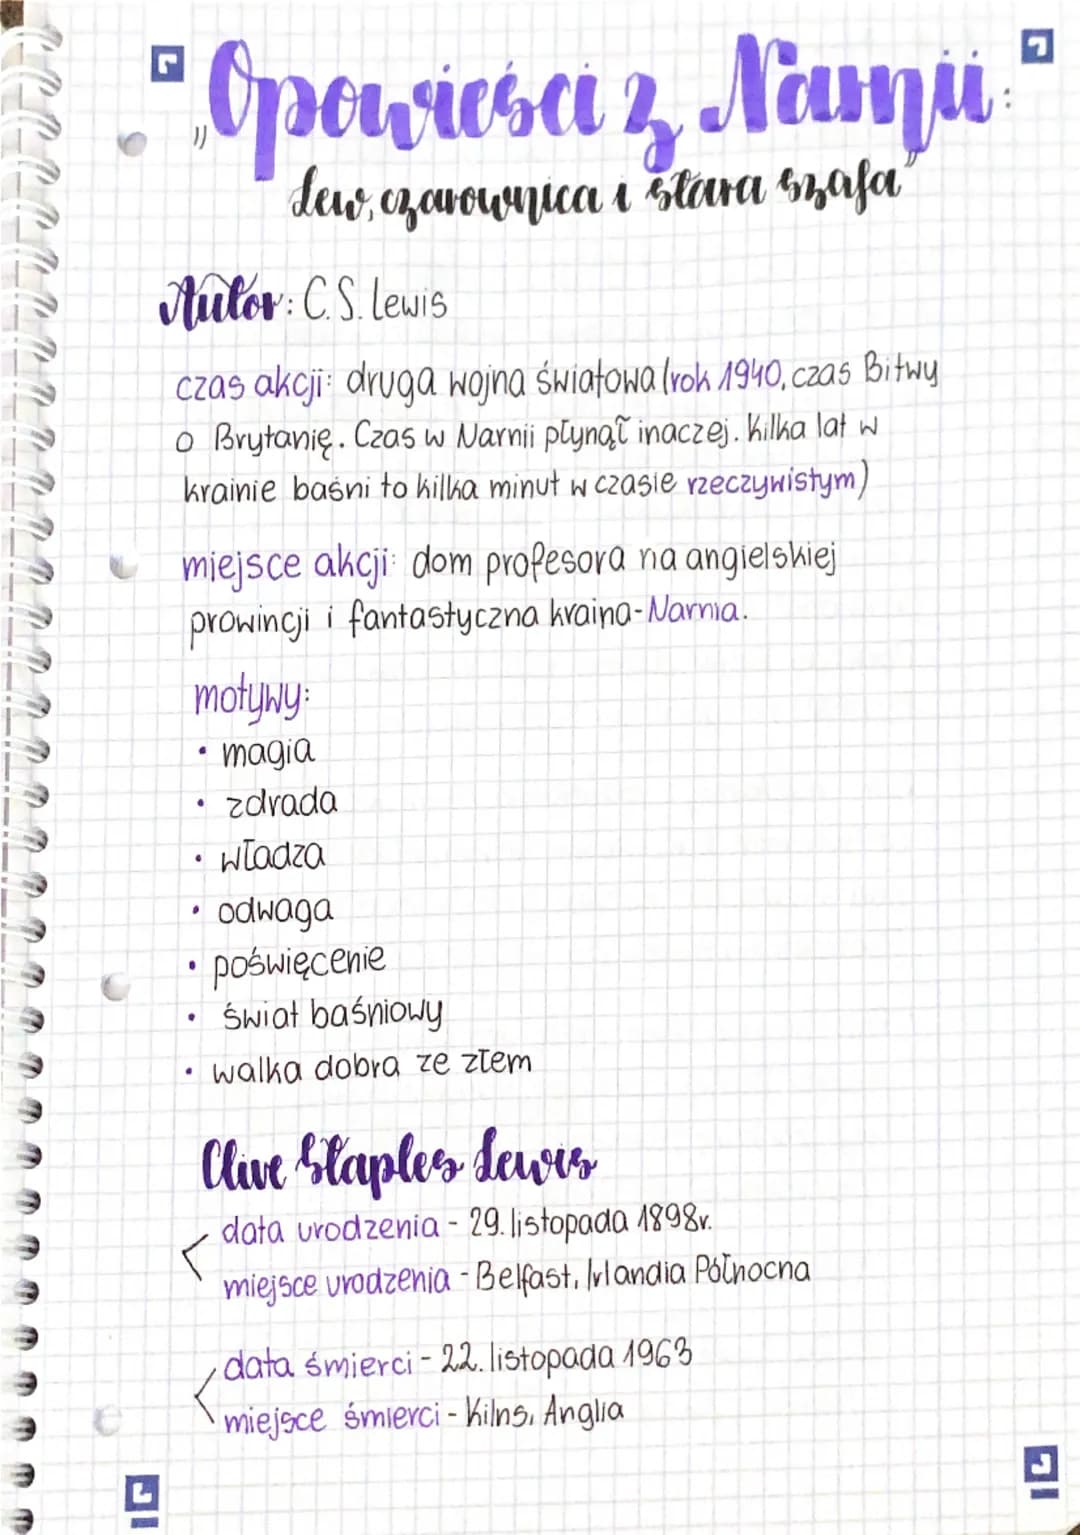 „Opowieści z Narnii:
Lew, czarownica i stara szafa”
Autor: C.S. Lewis
czas akcji: druga wojna światowa (rok 1940, czas Bitwy
o Brytanię. Czas w Narnii płynął inaczej. Kilka lat w
krainie baśni to kilka minut w czasie rzeczywistym)
miejsce akcji: dom profesora na angielskiej
prowincji i fantastyczna kraina-Narnia.
motywy:
• magia
• zdrada
• władza
• odwaga
• poświęcenie
• świat baśniowy
• walka dobra ze złem
Clive Staples Lewis
data urodzenia - 29. listopada 1898r.
miejsce urodzenia - Belfast, Irlandia Północna
data śmierci - 22. listopada 1963
miejsce śmierci - Kilns, Anglia